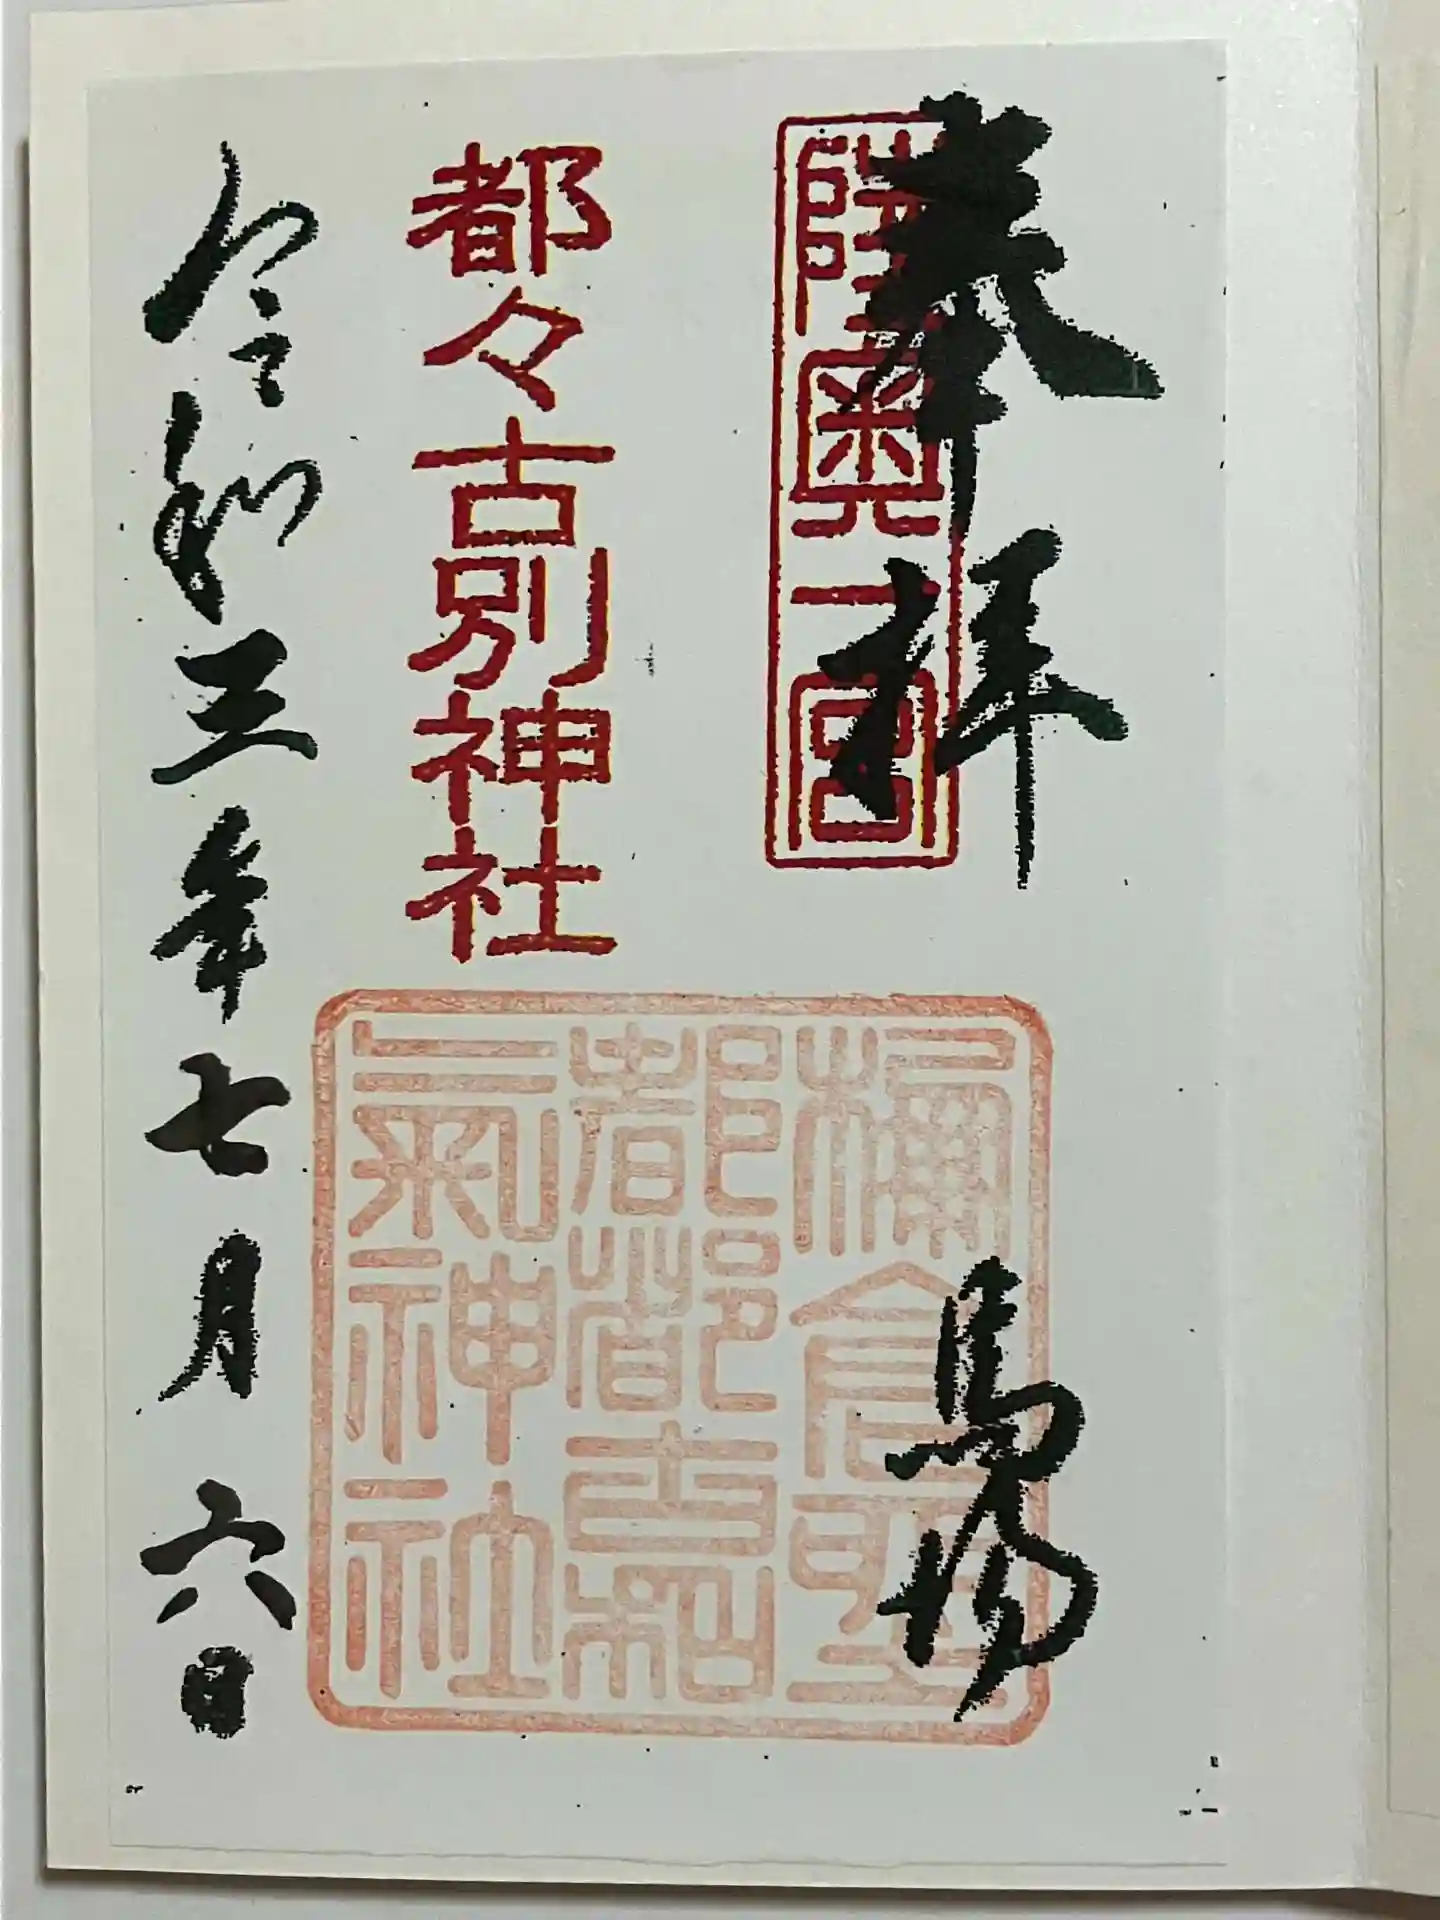 奉拝
陸奥一宮
馬場
都々古別神社
棚倉
都都古和
氣神社
令和三年七月六日